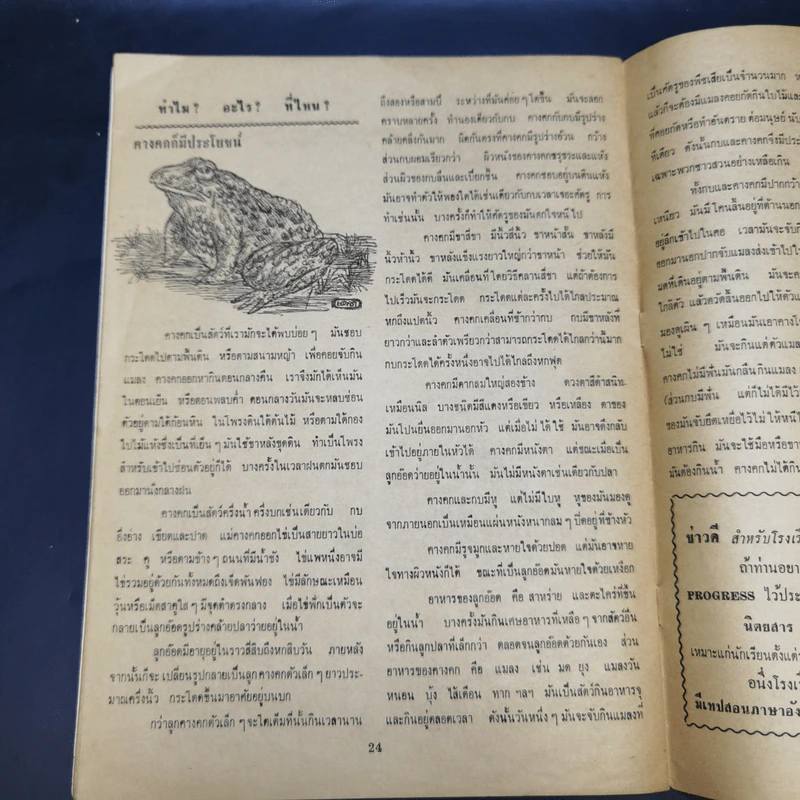 ทำไม? อะไร? ที่ไหน?
คางคกก็มีประโยชน์
คางคกเป็นสัตว์ที่เรามักจะได้พบบ่อย ๆ มันชอบ
กระโดดไปตามพื้นดิน หรือตามสนามหญ้า เพื่อคอยจับกิน
แมลง คางคกออกหากินตอนกลางคืน เราจึงมักได้เห็นมัน
ในตอนเย็น หรือตอนพลบค่ำ ตอนกลางวันมันจะหลบซ่อน
ตัวอยู่ตามใต้ก้อนหิน ในโพรงดินใต้ต้นไม้ หรือตามใต้กอง
ใบไม้แห้งซึ่งเป็นที่เย็น ๆ มันใช้ขาหลังขุดดิน ทำเป็นโพรง
สำหรับเข้าไปซ่อนตัวอยู่ก็ได้ บางครั้งในเวลาฝนตกมันชอบ
ออกมานั่งกลางฝน
คางคกเป็นสัตว์ครึ่งน้ำ ครึ่งบกเช่นเดียวกับ กบ
อึ่งอ่าง เขียดและปาด แม่คางคกออกไข่เป็นสายยาวในบ่อ
สระ คู หรือตามข้าง ๆ ถนนที่มีน้ำขัง ไข่แพหนึ่งอาจมี
ไข่รวมอยู่ด้วยกันทั้งหมดถึงเจ็ดพันฟอง ไข่มีลักษณะเหมือน
วุ้นหรือเม็ดสาคูใส ๆ มีจุดดำตรงกลาง เมื่อไข่ฟักเป็นตัวจะ
กลายเป็นลูกอ๊อดรูปร่างคล้ายปลาว่ายอยู่ในน้ำ
ลูกอ๊อดมีอายุอยู่ในราวสี่สิบถึงหกสิบวัน ภายหลัง
จากนั้นก็จะ เปลี่ยนรูปกลายเป็นลูกคางคกตัวเล็ก ๆ ยาวประ-
มาณครึ่งนิ้ว กระโดดขึ้นมาอาศัยอยู่บนบก
กว่าลูกคางคกตัวเล็ก ๆ จะโตเต็มที่นั้นกินเวลานาน
ถึงสองหรือสามปี ระหว่างที่มันค่อย ๆ โตขึ้น มันจะลอก
คราบหลายครั้ง ทำนองเดียวกับกบ คางคกกับกบมีรูปร่าง
คล้ายคลึงกันมาก ผิดกันตรงที่คางคกมีรูปร่างอ้วน กว้าง
ส่วนกบผอมเรียวกว่า ผิวหนังของคางคกขรุขระและแห้ง
ส่วนผิวของกบลื่นและเปียกชื้น คางคกชอบอยู่บนดินแห้ง
มันอาจทำตัวให้พองโตได้เช่นเดียวกับกบเวลาเจอะศัตรู การ
ทำเช่นนั้น บางครั้งก็ทำให้ศัตรูของมันตกใจหนีไป
คางคกมีขาสี่ขา มีนิ้วสี่นิ้ว ขาหน้าสั้น ขาหลังมี
นิ้วห้านิ้ว ขาหลังแข็งแรงยาวใหญ่กว่าขาหน้า ช่วยให้มัน
กระโดดได้ดี มันเคลื่อนที่โดยวิธีคลานสี่ขา แต่ถ้าต้องการ
ไปเร็วมันจะกระโดด กระโดดแต่ละครั้งไปได้ไกลประมาณ
หกถึงแปดนิ้ว คางคกเคลื่อนที่ช้ากว่ากบ กบมีขาหลังที่
ยาวกว่าและลำตัวเพรียวกว่าสามารถกระโดดได้ไกลกว่านี้มาก
กบกระโดดได้ครั้งหนึ่งอาจไปได้ไกลถึงหกฟุต
คางคกมีตากลมใหญ่สองข้าง ดวงตาสีดำสนิท-
เหมือนนิล บางชนิดมีสีแดงหรือเขียว หรือเหลือง ตาของ
มันโปนยื่นออกมานอกหัว แต่เมื่อไม่ได้ใช้ มันอาจดึงกลับ
เข้าไปอยู่ภายในหัวได้ คางคกมีหนังตา แต่ขณะเมื่อเป็น
ลูกอ๊อดว่ายอยู่ในน้ำนั้น มันไม่มีหนังตาเช่นเดียวกับปลา
คางคกและกบมีหู แต่ไม่มีใบหู หูของมันมองดู
จากภายนอกเป็นเหมือนแผ่นหนังหนากลม ๆ ปิดอยู่ที่ข้างหัว
คางคกมีรูจมูกและหายใจด้วยปอด แต่มันอาจหาย
ใจทางผิวหนังก็ได้ ขณะที่เป็นลูกอ๊อดมันหายใจด้วยเหงือก
อาหารของลูกอ๊อด คือ สาหร่าย และตะไคร่ที่ขึ้น
อยู่ในน้ำ บางครั้งมันกินเศษอาหารที่เหลือ ๆ จากสัตว์อื่น
หรือกินลูกปลาที่เล็กกว่า ตลอดจนลูกอ๊อดด้วยกันเอง ส่วน
อาหารของคางคก คือ แมลง เช่น มด ยุง แมลงวัน
หนอน บุ้ง ไส้เดือน ทาก ฯลฯ มันเป็นสัตว์กินอาหารจุ
และกินอยู่ตลอดเวลา ดังนั้นวันหนึ่ง ๆ มันจะจับกินแมลงที่
24
เป็นศัตรูของพืชเสียเป็นจำนวนมาก
แล้วก็จะต้องมีแมลงคอยกัดกินใบไม้และ
ที่คอยกัดหรือทำอันตราย ต่อมนุษย์ นับ
ทีเดียว ดังนั้นกบและคางคกจึงมีประ
เฉพาะพวกชาวสวนอย่างเหลือเกิน
ทั้งกบและคางคกมีปากกว้า
เหนียว มันมีโคนลิ้นอยู่ที่ด้านนอก
อยู่ลึกเข้าไปในคอ เวลามันจะจับกิ
ออกมานอกปากจับแมลงส่งเข้าไปใน
มดที่เดินอยู่ตามพื้นดิน มันจะค
ใกล้ตัว แล้วตวัดลิ้นออกไปให้ตัว
มองดูเผิน ๆ เหมือนมันเอาคางไป
ไม่ใช่ มันจะกินแต่ตัวแมล
คางคกไม่มีฟันมันกลืนกินแมลง
(ส่วนกบมีฟัน แต่ก็ไม่ได้มีไว้
ของมันจับยึดเหยื่อไว้ไม่ให้หนี
อาหารกิน มันจะใช้มือหรือขา
มันต้องกินน้ำ คางคกไม่ได้กิน
ข่าวดี สำหรับโรงเรี
ถ้าท่านอยา
PROGRESS ไว้ประ
นิตยสาร
เหมาะแก่นักเรียนตั้งแต่
อนึ่งโรงเรี
มีเทปสอนภาษาอัง